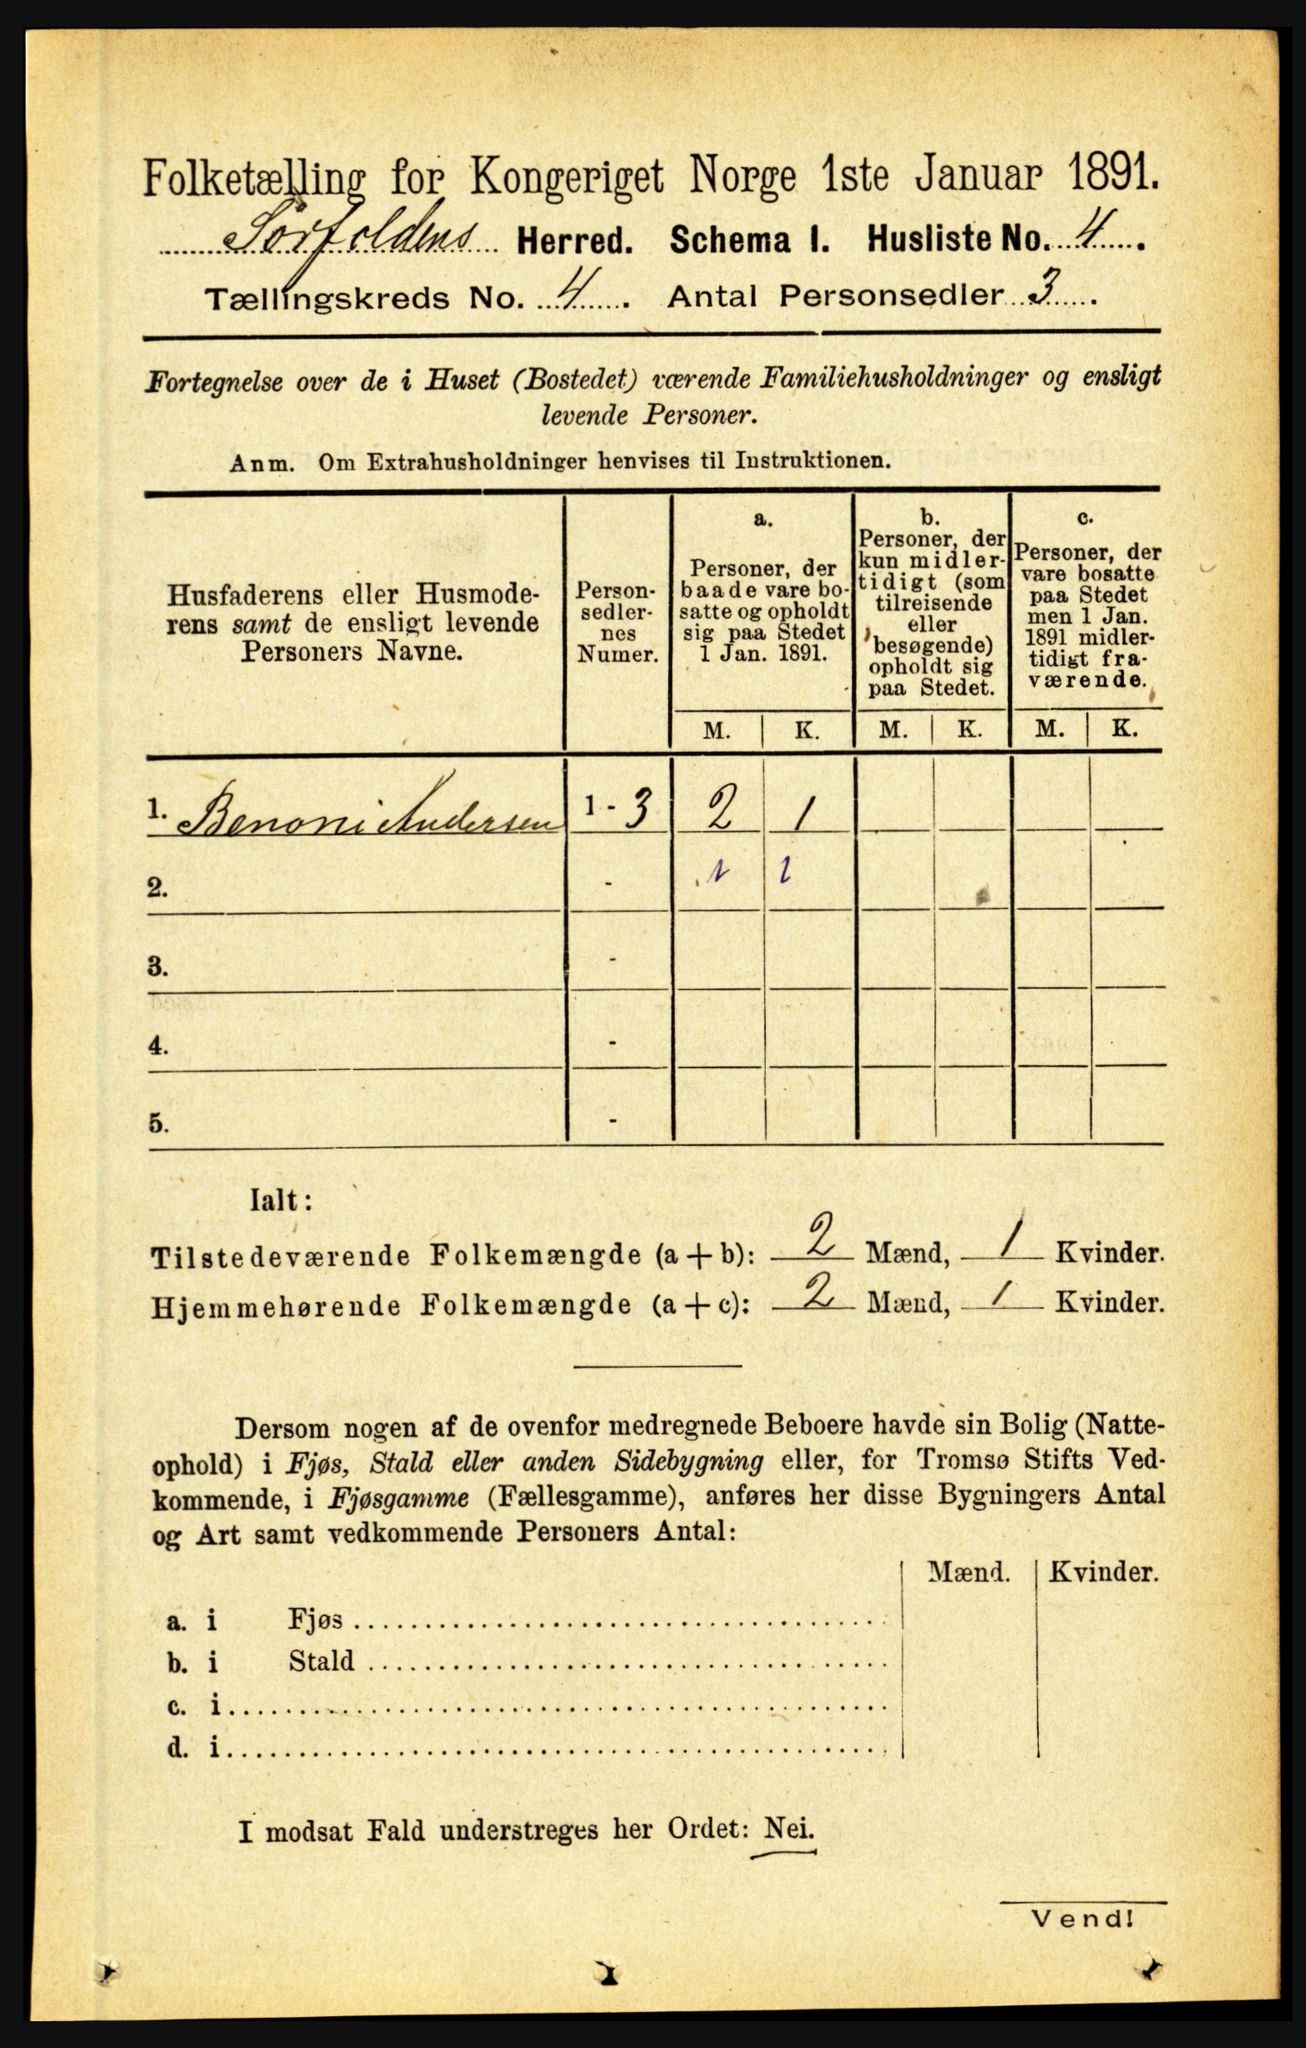 Folketælling for Kongeriget Norge 1ste Januar 1891.
Sørfoldens Herred. Schema I. Husliste No. 4.
Tællingskreds No. 4. Antal Personsedler 3.
Fortegnelse over de i Huset (Bostedet) værende Familiehusholdninger og ensligt
levende Personer.
Anm. Om Extrahusholdninger henvises til Instruktionen.
Husfaderens eller Husmode-
rens samt de ensligt levende
Personers Navne.
Person-
sedler-
nes
Numer.
a.
Personer, der
baade vare bo-
satte og opholdt
sig paa Stedet
1 Jan. 1891.
b.
Personer, der
kun midler-
tidigt (som
tilreisende
eller
besøgende)
opholdt sig
paa Stedet.
c.
Personer, der
vare bosatte
paa Stedet
men 1 Jan.
1891 midler-
tidigt fra-
værende.
M. K. M. K. M. K.
1. Benoni Andersen 1 - 3 2 1
2. - 1 1
3. -
4. -
5. -
Ialt:
Tilstedeværende Folkemængde (a + b): 2 Mænd, 1 Kvinder.
Hjemmehørende Folkemængde (a + c): 2 Mænd, 1 Kvinder.
Dersom nogen af de ovenfor medregnede Beboere havde sin Bolig (Natte-
ophold) i Fjøs, Stald eller anden Sidebygning eller, for Tromsø Stifts Ved-
kommende, i Fjøsgamme (Fællesgamme), anføres her disse Bygningers Antal
og Art samt vedkommende Personers Antal:
Mænd. Kvinder.
a. i Fjøs
b. i Stald
c. i
d. i
I modsat Fald understreges her Ordet: Nei.
Vend!